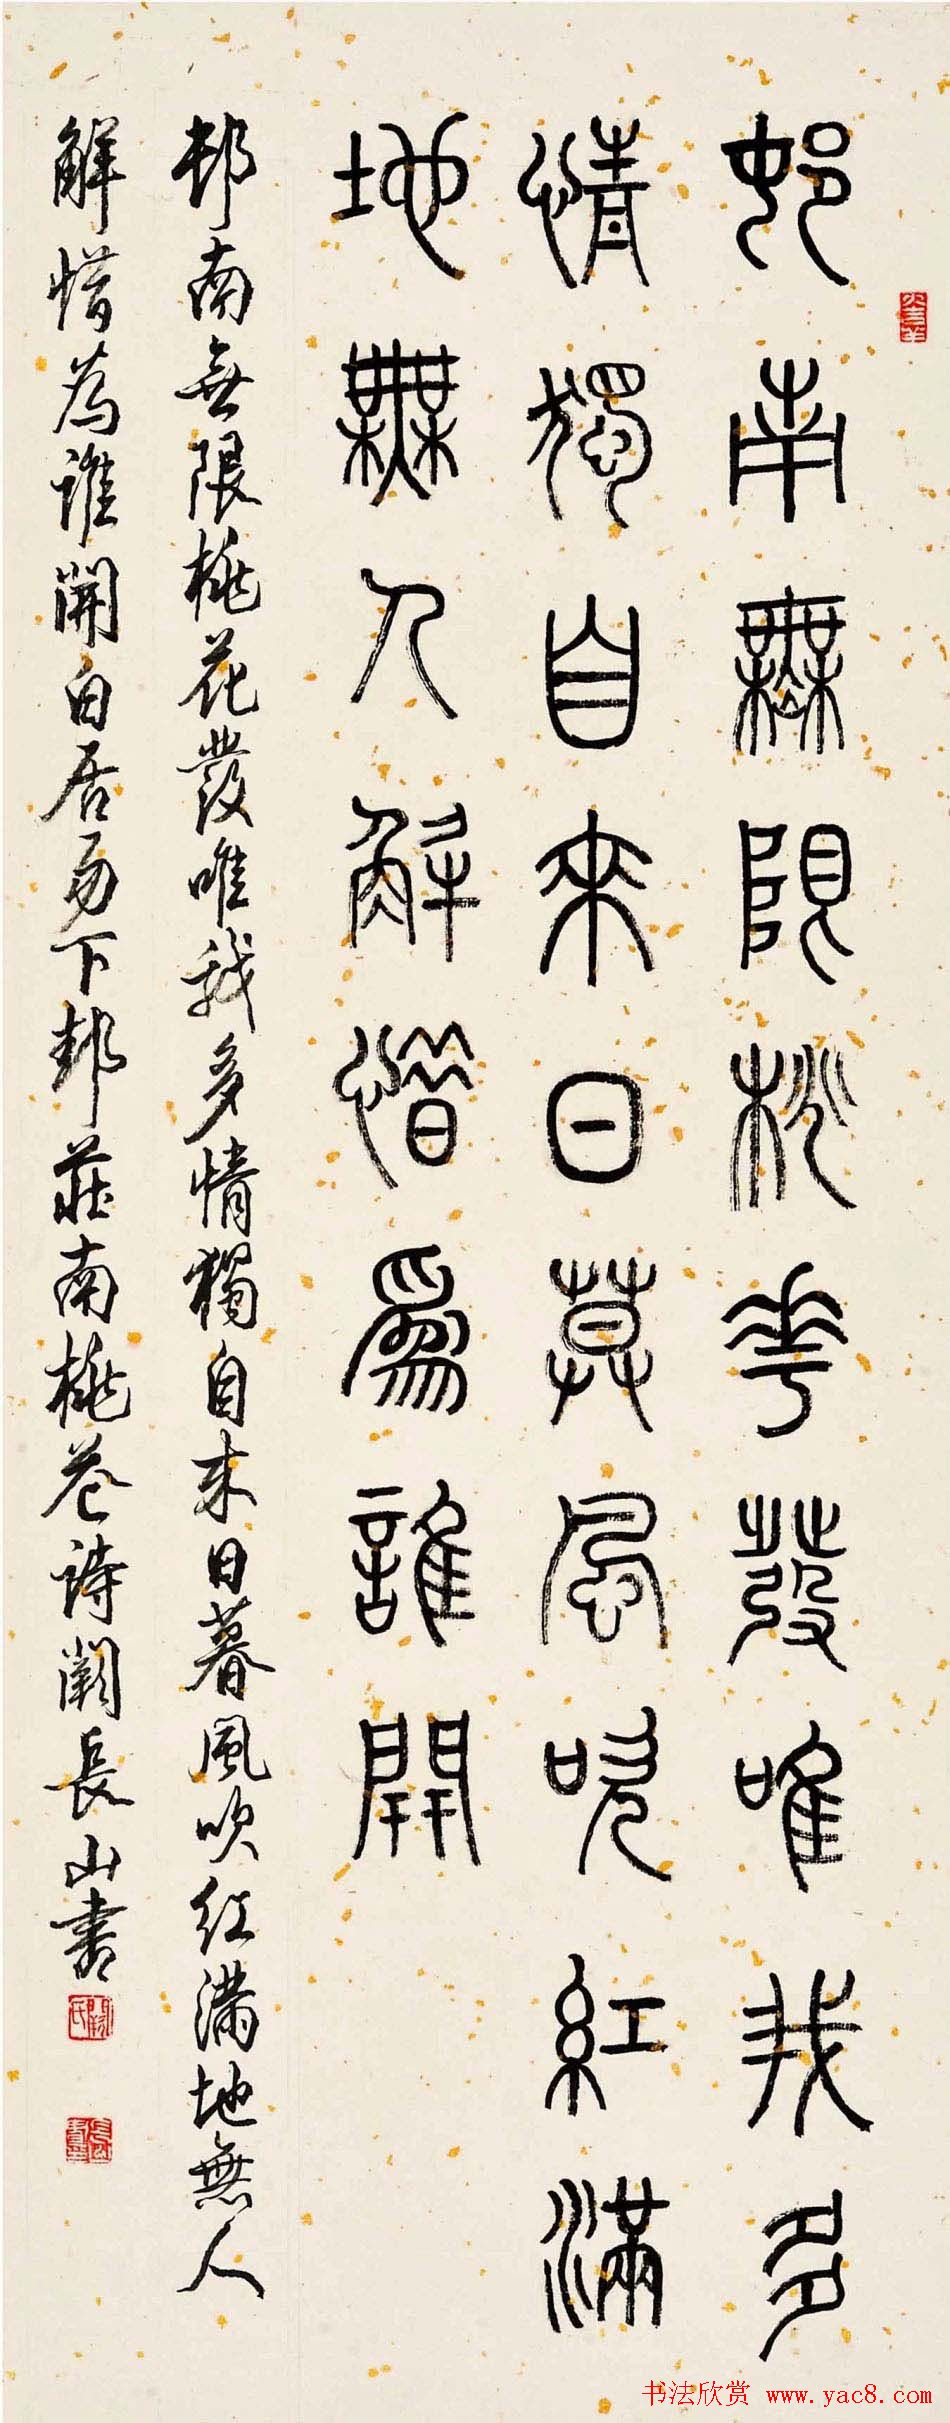 邨南無限桃華發唯我多
情獨自來日莫風吹紅滿
地無人解惜爲誰開
邨南無限桃花發唯我多情獨自来日暮風吹紅滿地無人
解惜為誰開白居易下邽莊南桃花詩闞長山書
书法欣赏 www.yac8.com